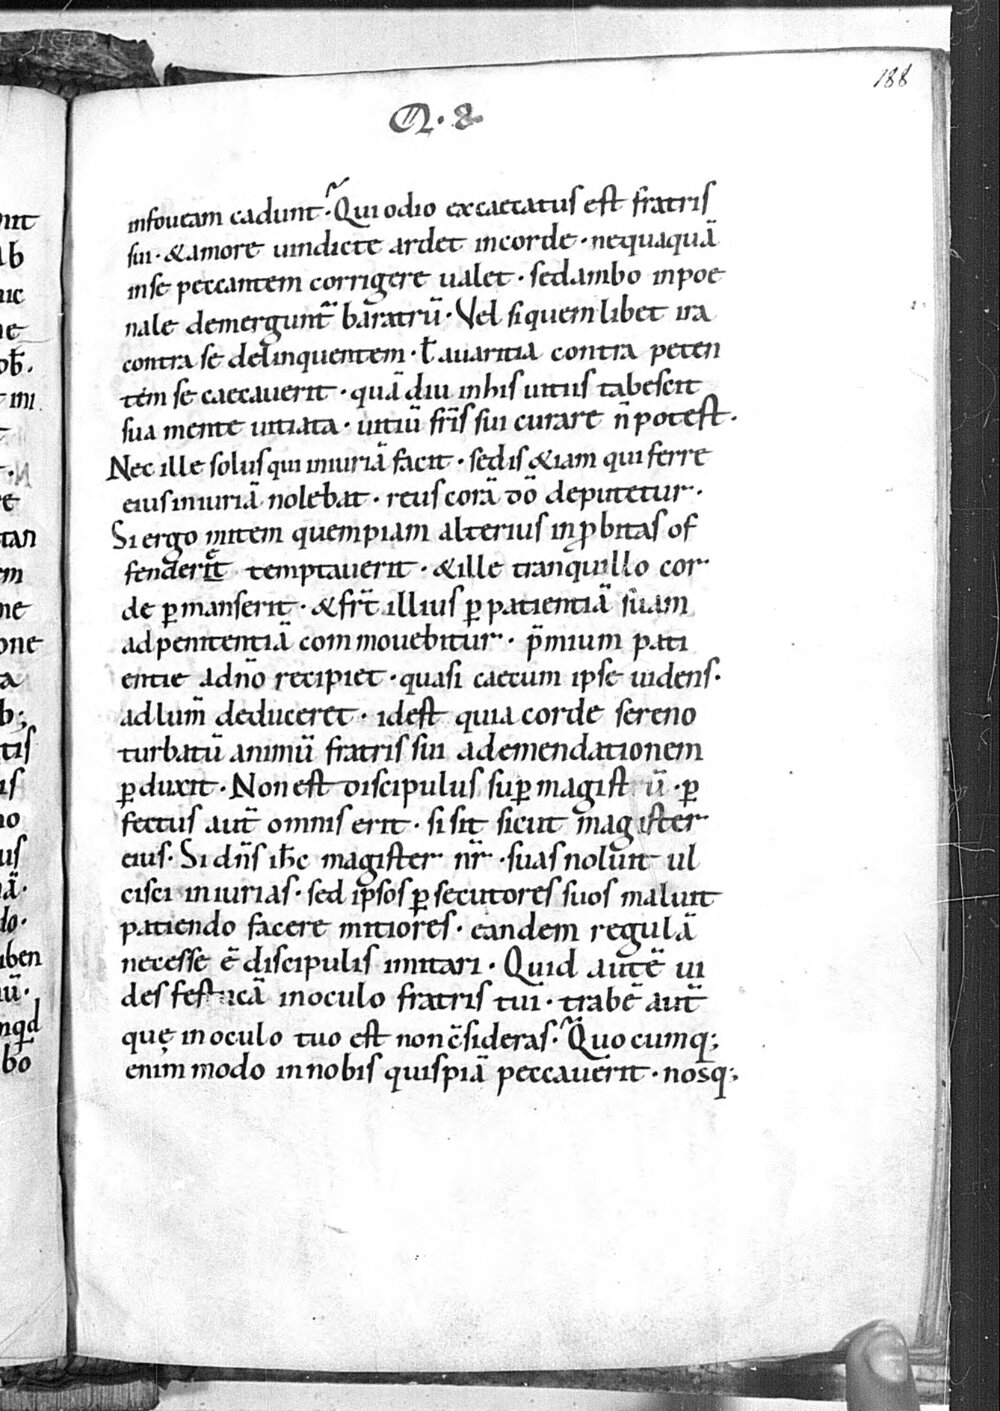 188
infoueam cadunt· Qui odio excaecatus est fratris
sui· &amore uindicte ardet incorde· nequaquā
inse peccantem corrigere ualet· sedambo inpoe
nale demergunt̄ baratrū· Vel siquemlibet ira
contra se delinquentem· ł auaritia contra peten
tem se caecauerit· quā diu inhis uitiis tabescit
sua mente uitiata· uitiū fr̄is sui curare n̄ potest·
Nec ille solus qui iniuriā facit· sedis &iam qui ferre
eius iniuriā nolebat· reus corā dō deputetur·
Si ergo mitem quempiam alterius inꝓbitas of
fenderit temptauerit· &ille tranquillo cor
de ꝑmanserit· &fr̄t illius ꝑ patientiā suam
adpenitentiā commouebitur· p̄mium pati
entie adnō recipiet· quasi caecum ipse uidens·
adlum̄ deduceret· idest quia corde sereno
turbatū animū fratris sui ademendationem
ꝑduxit· Non est discipulus suꝑ magistrū· ꝑ
fectus aut̄ omnis erit· si sit sicut magister
eius· Si dn̄s ih̄c magister nr̄· suas noluit ul
cisci iniurias· sed ipsos ꝑsecutores suos maluit
patiendo facere mitiores· eandem regulā
necesse ē discipulis imitari· Quid autē ui
des festucā inoculo fratris tui· trabē aut̄
quę inoculo tuo est non c̄sideras· Quo cumq;
enim modo innobis quispiā peccauerit· nosq;
nit
ab
tan
em
ne
one
a
b;
tis
is
no
us
do·
iben
inqd
bo